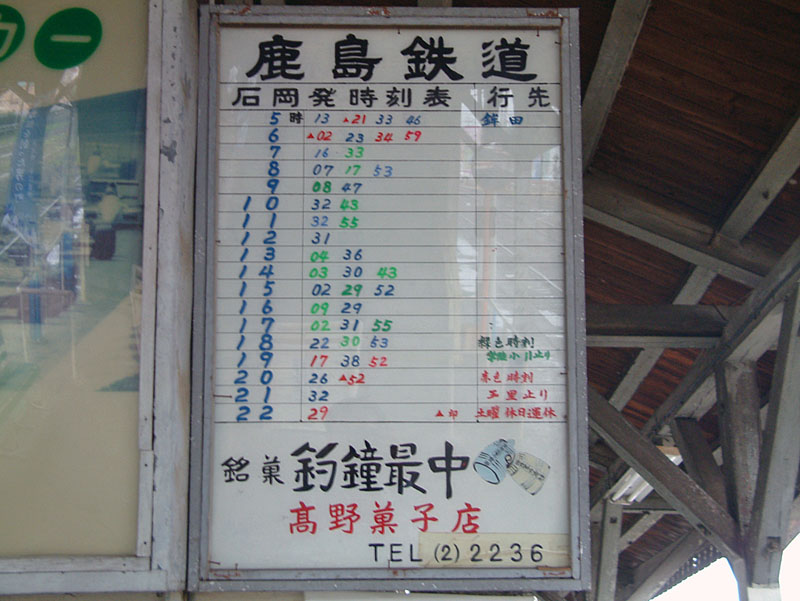 カー
鹿島鉄道
石岡発時刻表 行先
5時 13 ▲21 33 46 鉾田
6 ▲02 23 34 59
7 16 33
8 07 17 53
9 08 47
10 32 43
11 32 55
12 31
13 04 36
14 03 30 43
15 02 29 52
16 09 29
17 02 31 55
18 22 30 53 緑色時刻
常陸小川止り
19 17 38 52
20 26 ▲52 赤色時刻
21 32 玉里止り
22 29 ▲印 土曜休日運休
銘菓 釣鐘最中
髙野菓子店
TEL (2) 2236